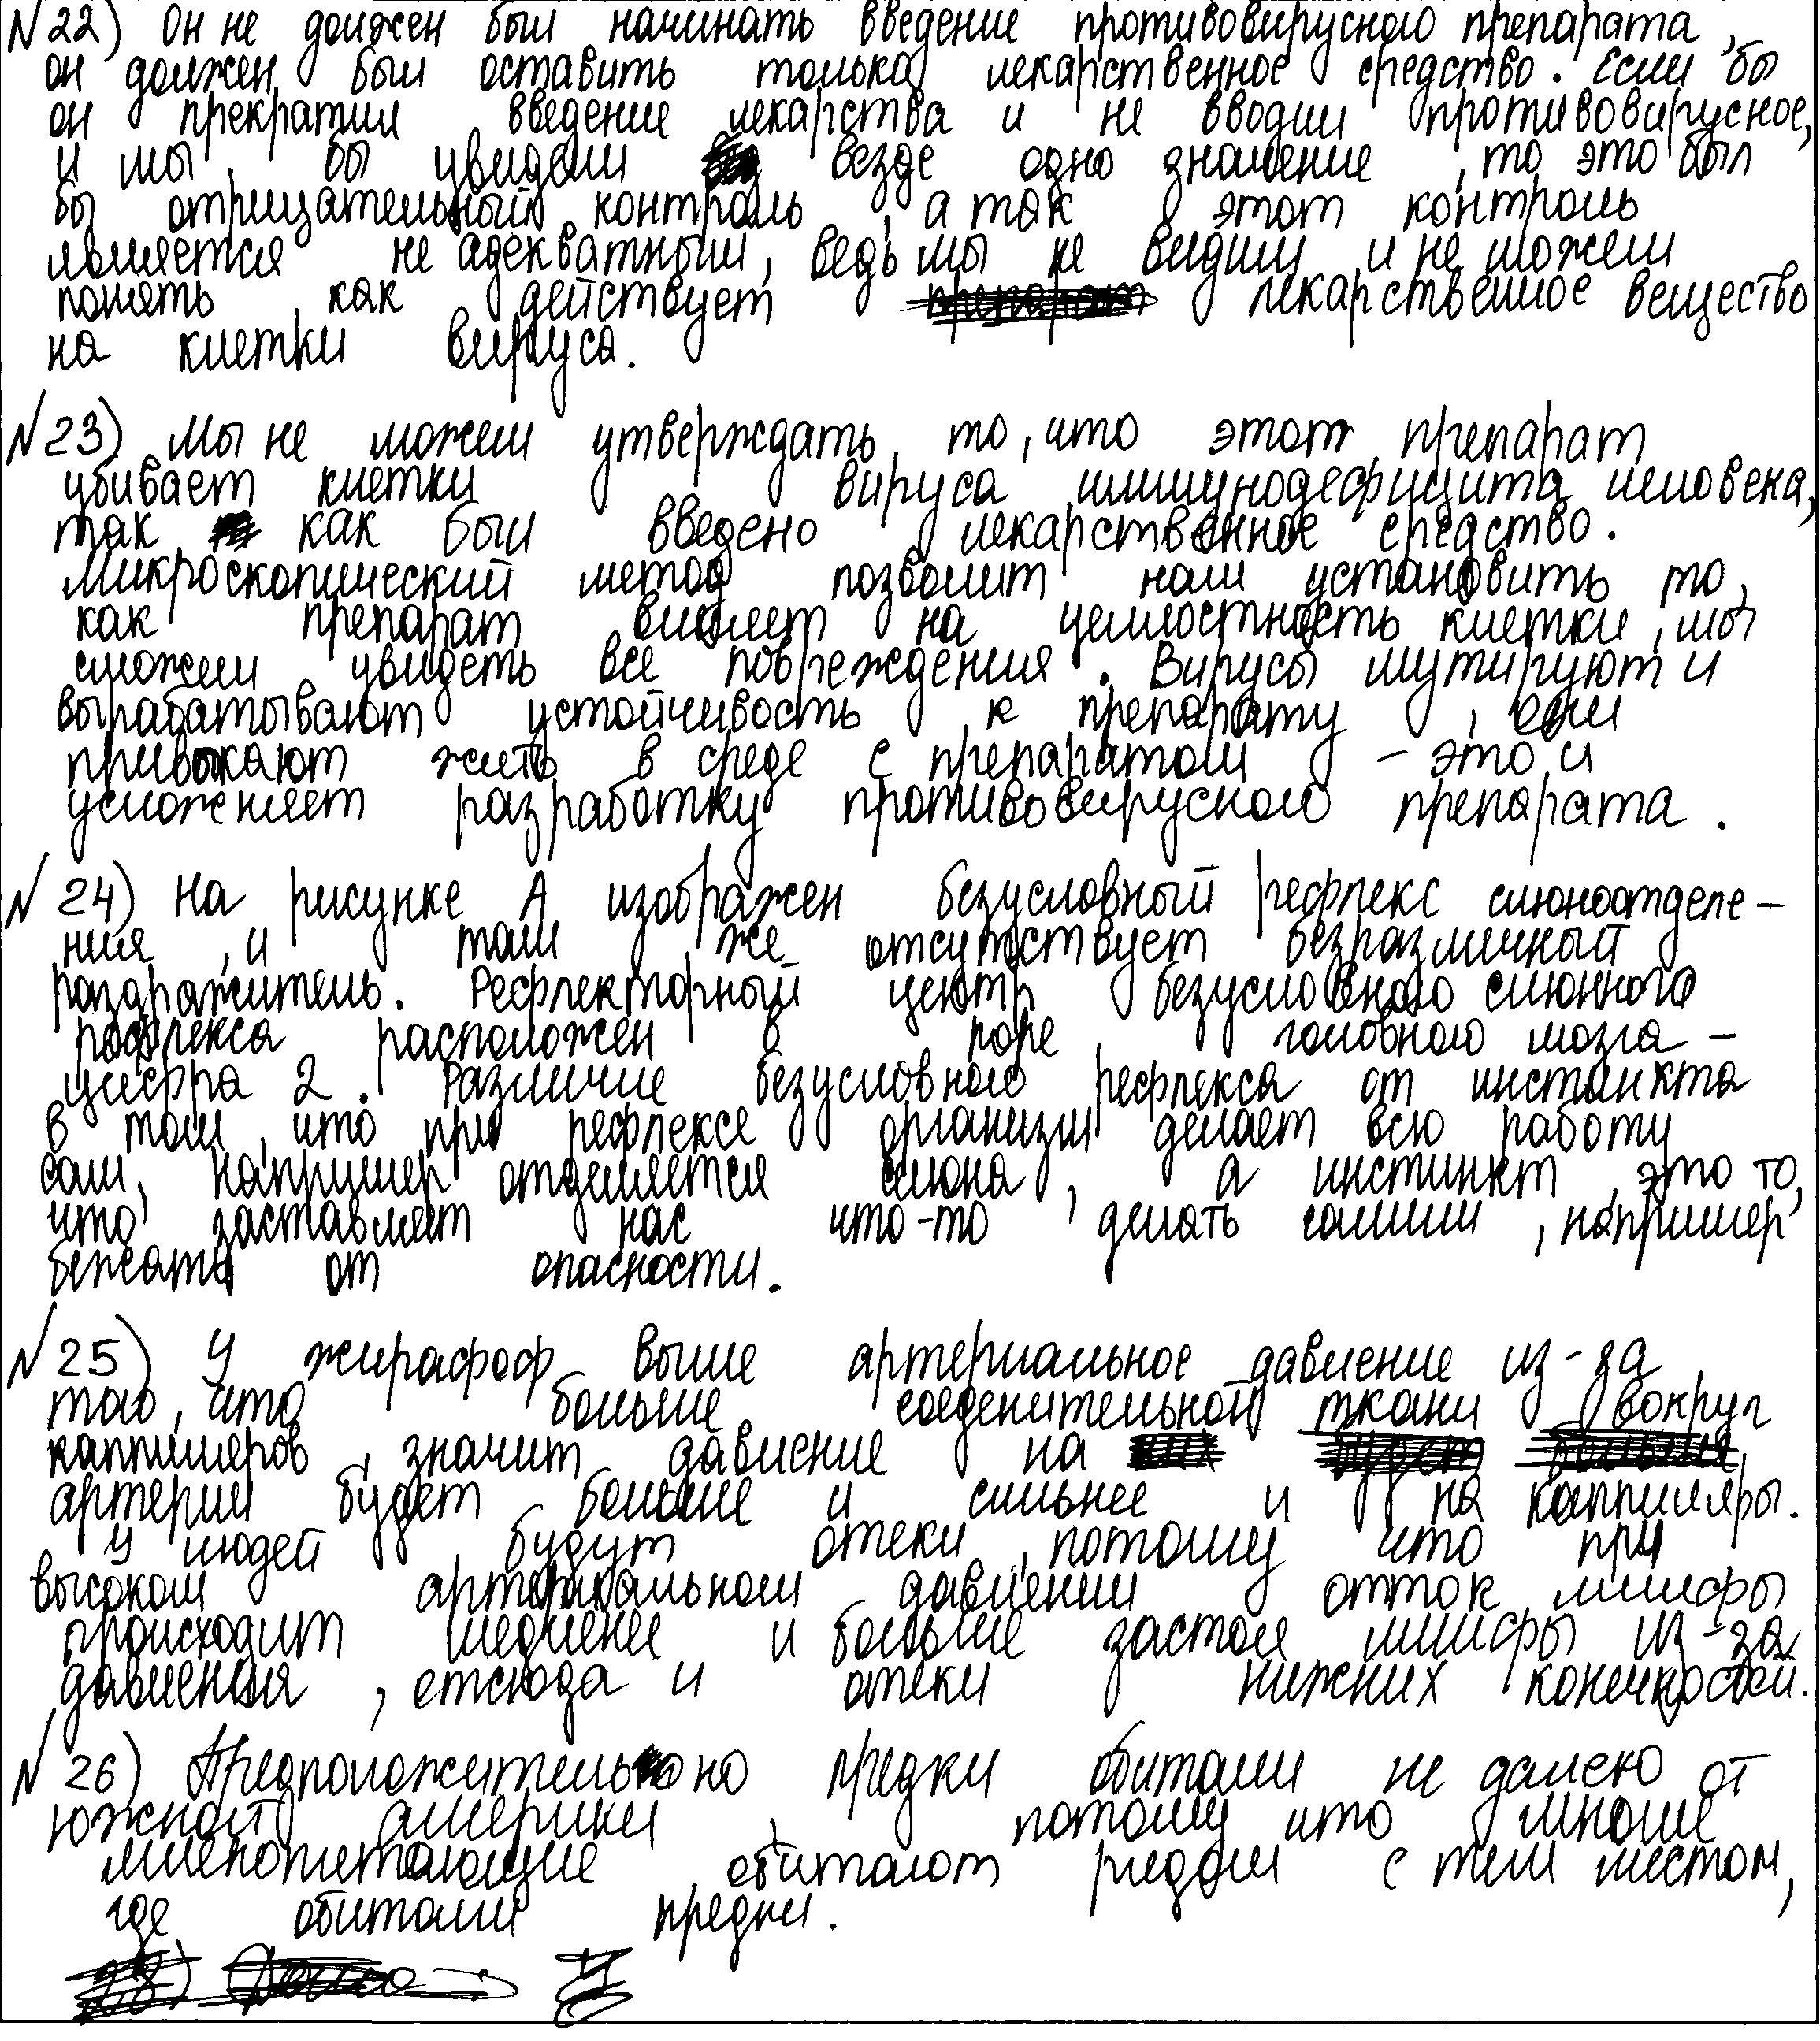 №22) Он не должен был начинать введение противовирусного препарата,
он должен был оставить только лекарственное средство. Если бы
он прекратил введение лекарства и не вводил противовирусное,
и мы бы увидели везде одно значение, то это был
бы отрицательный контроль, а так этот контроль
является не адекватным, ведь мы не видим и не можем
понять, как действует лекарственное вещество
на клетки вируса.
№23) Мы не можем утверждать то, что этот препарат
убивает клетки вируса иммунодефицита человека,
так как был введено лекарственное средство.
Микроскопический метод позволит нам установить то,
как препарат влияет на целостность клетки, мы
сможем увидеть все повреждения. Вирусы мутируют и
вырабатывают устойчивость к препарату, они
привыкают жить в среде с препаратом – это и
усложняет разработку противовирусного препарата.
№24) На рисунке А изображен безусловный рефлекс слюноотделе-
ния, и там же отсутствует безразличный
раздражитель. Рефлекторный центр безусловного слюнного
рефлекса расположен в коре головного мозга –
цифра 2. Различие безусловного рефлекса от инстинкта
в том, что при рефлексе организм делает всю работу
сам, например отделяется слюна, а инстинкт, это то,
что заставляет нас что-то делать самим, например
бежать от опасности.
№25) У жирафоф выше артериальное давление из-за
того, что больше соеденительной ткани вокруг
каппиляров, значит давление на
артерии будет больше и сильнее и на каппиляры.
У людей будут отеки, потому что при
высоком артериальном давлении отток лимфы
происходит медленее и больше застоя лимфы из-за
давления, отсюда и отеки нижних конечностей.
№26) Предположительно предки обитали не далеко от
южной америки, потому что многие
млекопитающие обитают рядом с тем местом,
где обитали предки.